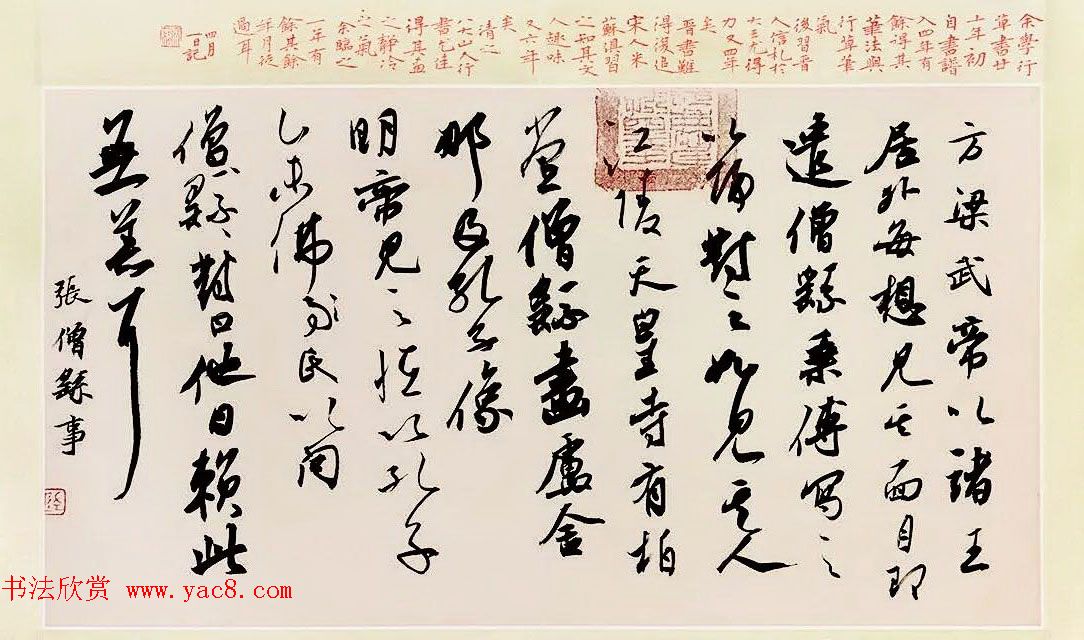 余學行
草書廿
十年初
自書譜
入四年有
餘得其
華法與
行草筆
氣
後習晉
人信札於
大王尤得
力又四年
矣
晉書難
得復追
宋人米
蘇俱習
之知其文
人趣味
又六年
矣
清之
八大山人行
書乞佳
得其画
之静冷
之氣
余臨之
一年有
餘其餘
年月從
過耳
四月
一日記
方梁武帝以諸王
居外每想見其面目即
遣僧繇乘傳寫之
以歸對之如見其人
江陵天皇寺有柏
堂僧繇畫盧舍
那及孔子像
明帝見之怪以孔子
佛以问
僧繇對曰他日賴此
無恙耳
張僧繇事
书法欣赏 www.yac8.com